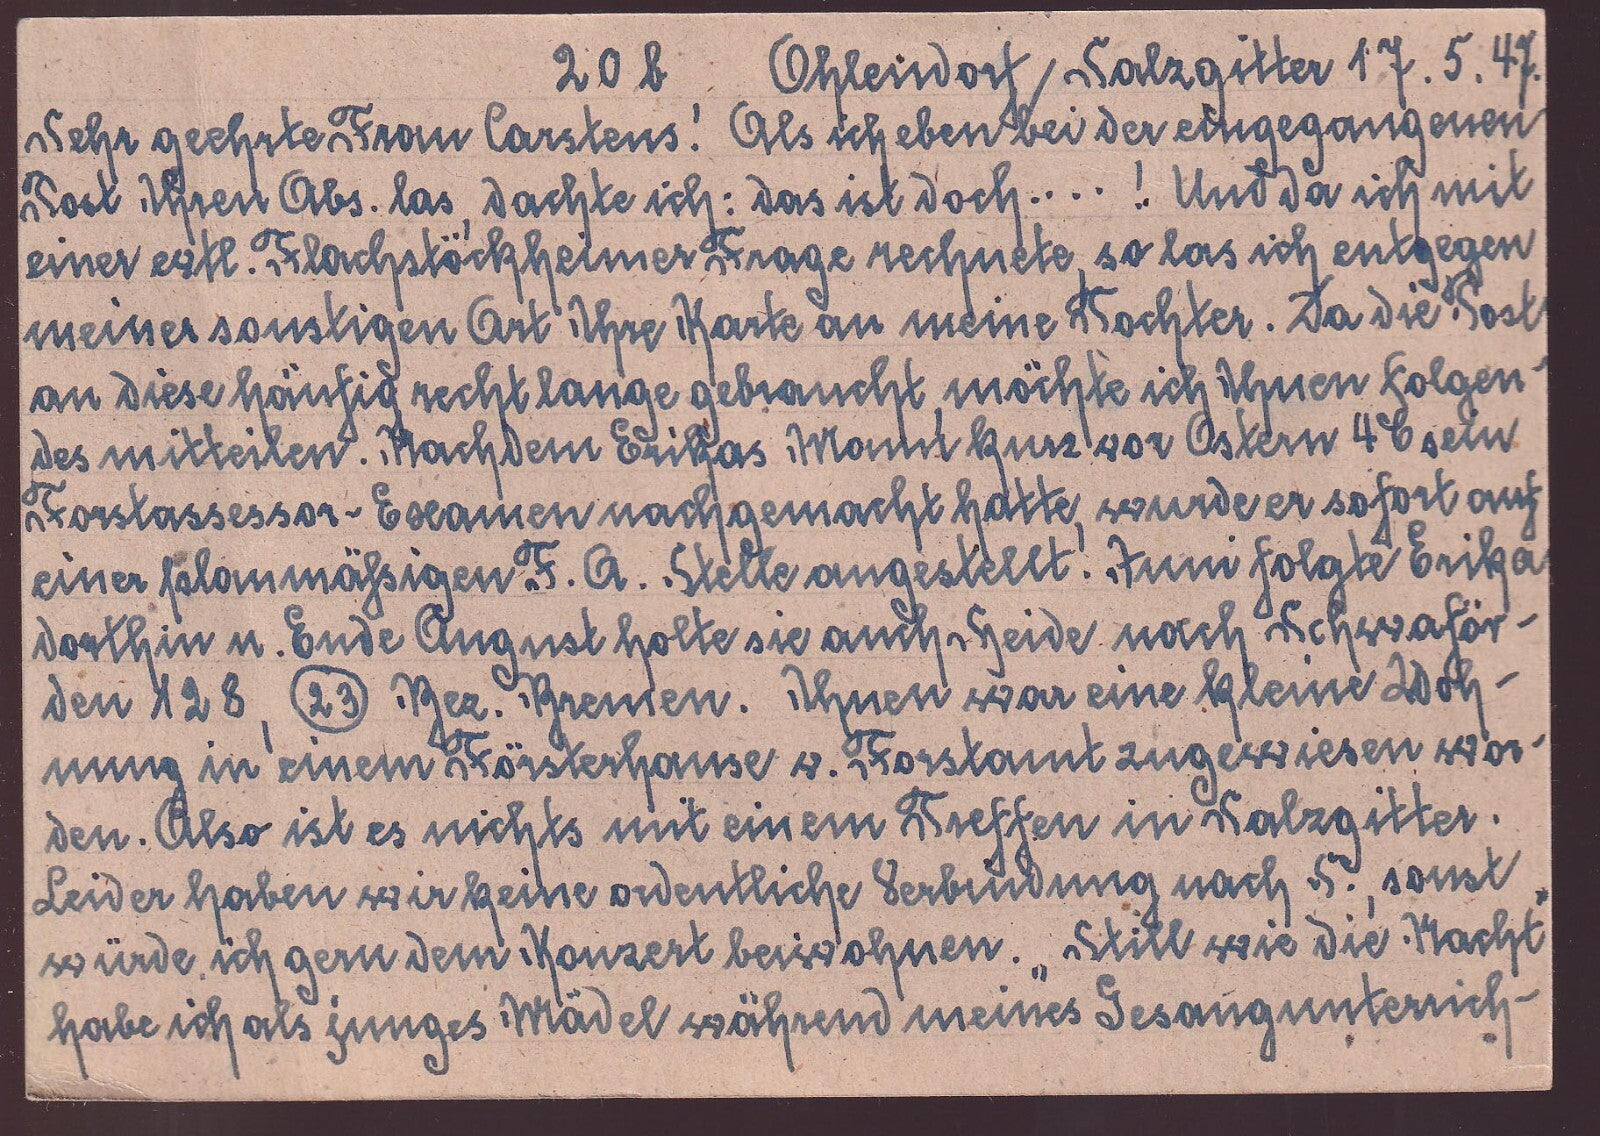 20b Ohlendorf/Salzgitter 17.5.47.
Sehr geehrte Frau Carstens! Als ich eben bei der eingegangenen
Post Ihren Abs. las, dachte ich: das ist doch....! Und da ich mit
einer evtl. Flachstöckheimer Frage rechnete, so las ich entgegen
meiner sonstigen Art Ihre Karte an meine Tochter. Da die Post
an diese häufig recht lange gebraucht, möchte ich Ihnen folgen-
des mitteilen. Nachdem Erikas Mann kurz vor Ostern 46 sein
Forstassessor-Examen nachgemacht hatte, wurde er sofort auf
einer planmäßigen F. A. Stelle angestellt. Juni folgte Erika
dorthin u. Ende August holte sie auch Heide nach Schwaför-
den 128, (23) Bez. Bremen. Ihnen war eine kleine Woh-
nung in einem Försterhause v. Forstamt zugewiesen wor-
den. Also ist es nichts mit einem Treffen in Salzgitter.
Leider haben wir keine ordentliche Verbindung nach S., sonst
würde ich gern dem Konzert beiwohnen. „Still wie die Nacht"
habe ich als junges Mädel während meines Gesangunterrich-